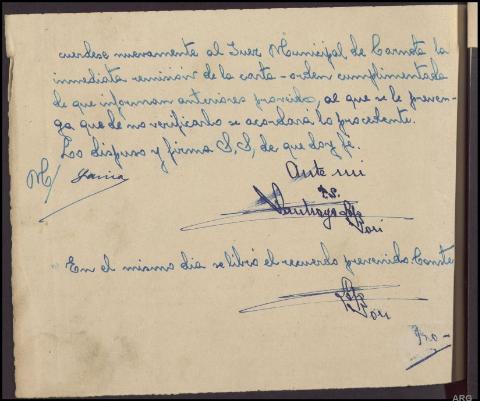 cuerdese nuevamente al Juez Municipal de Carnota la
inmediata remisión de la carta-orden cumplimentada
de que informan anteriores proveido, al que se le preven-
ga que de no verificarlo se acordara lo procedente.
Los dispuso y firma S.S, de que doy fe.
M/ Garcia
Ante mi
Santiago Lpz
Pori
En el mismo dia se libró el recuerdo prevenido. Conste
Lpz
Pori
ARG